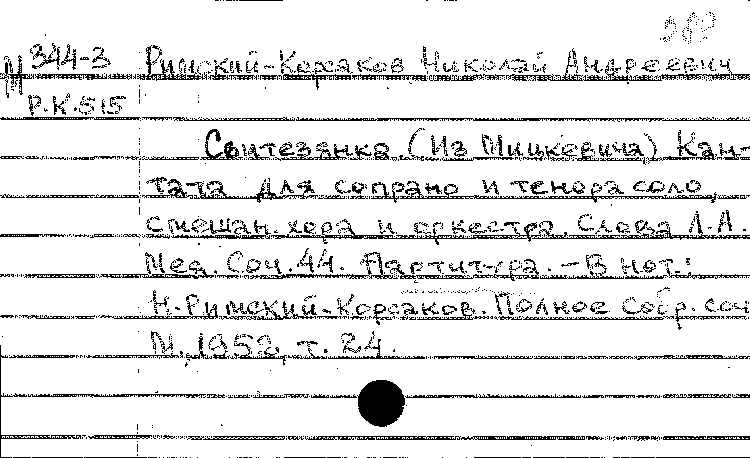 М 344-3 Римский-Корсаков Николай Андреевич
Р.К.515
Свитезянка. (Из Мицкевича) Кан-
тата для сопрано и тенора соло,
смешан. хора и оркестра. Слова Л.А.
Мея. Соч. 44. Партитура. - В нот.:
Н. Римский-Корсаков. Полное собр. соч
М., 1952, т. 24.